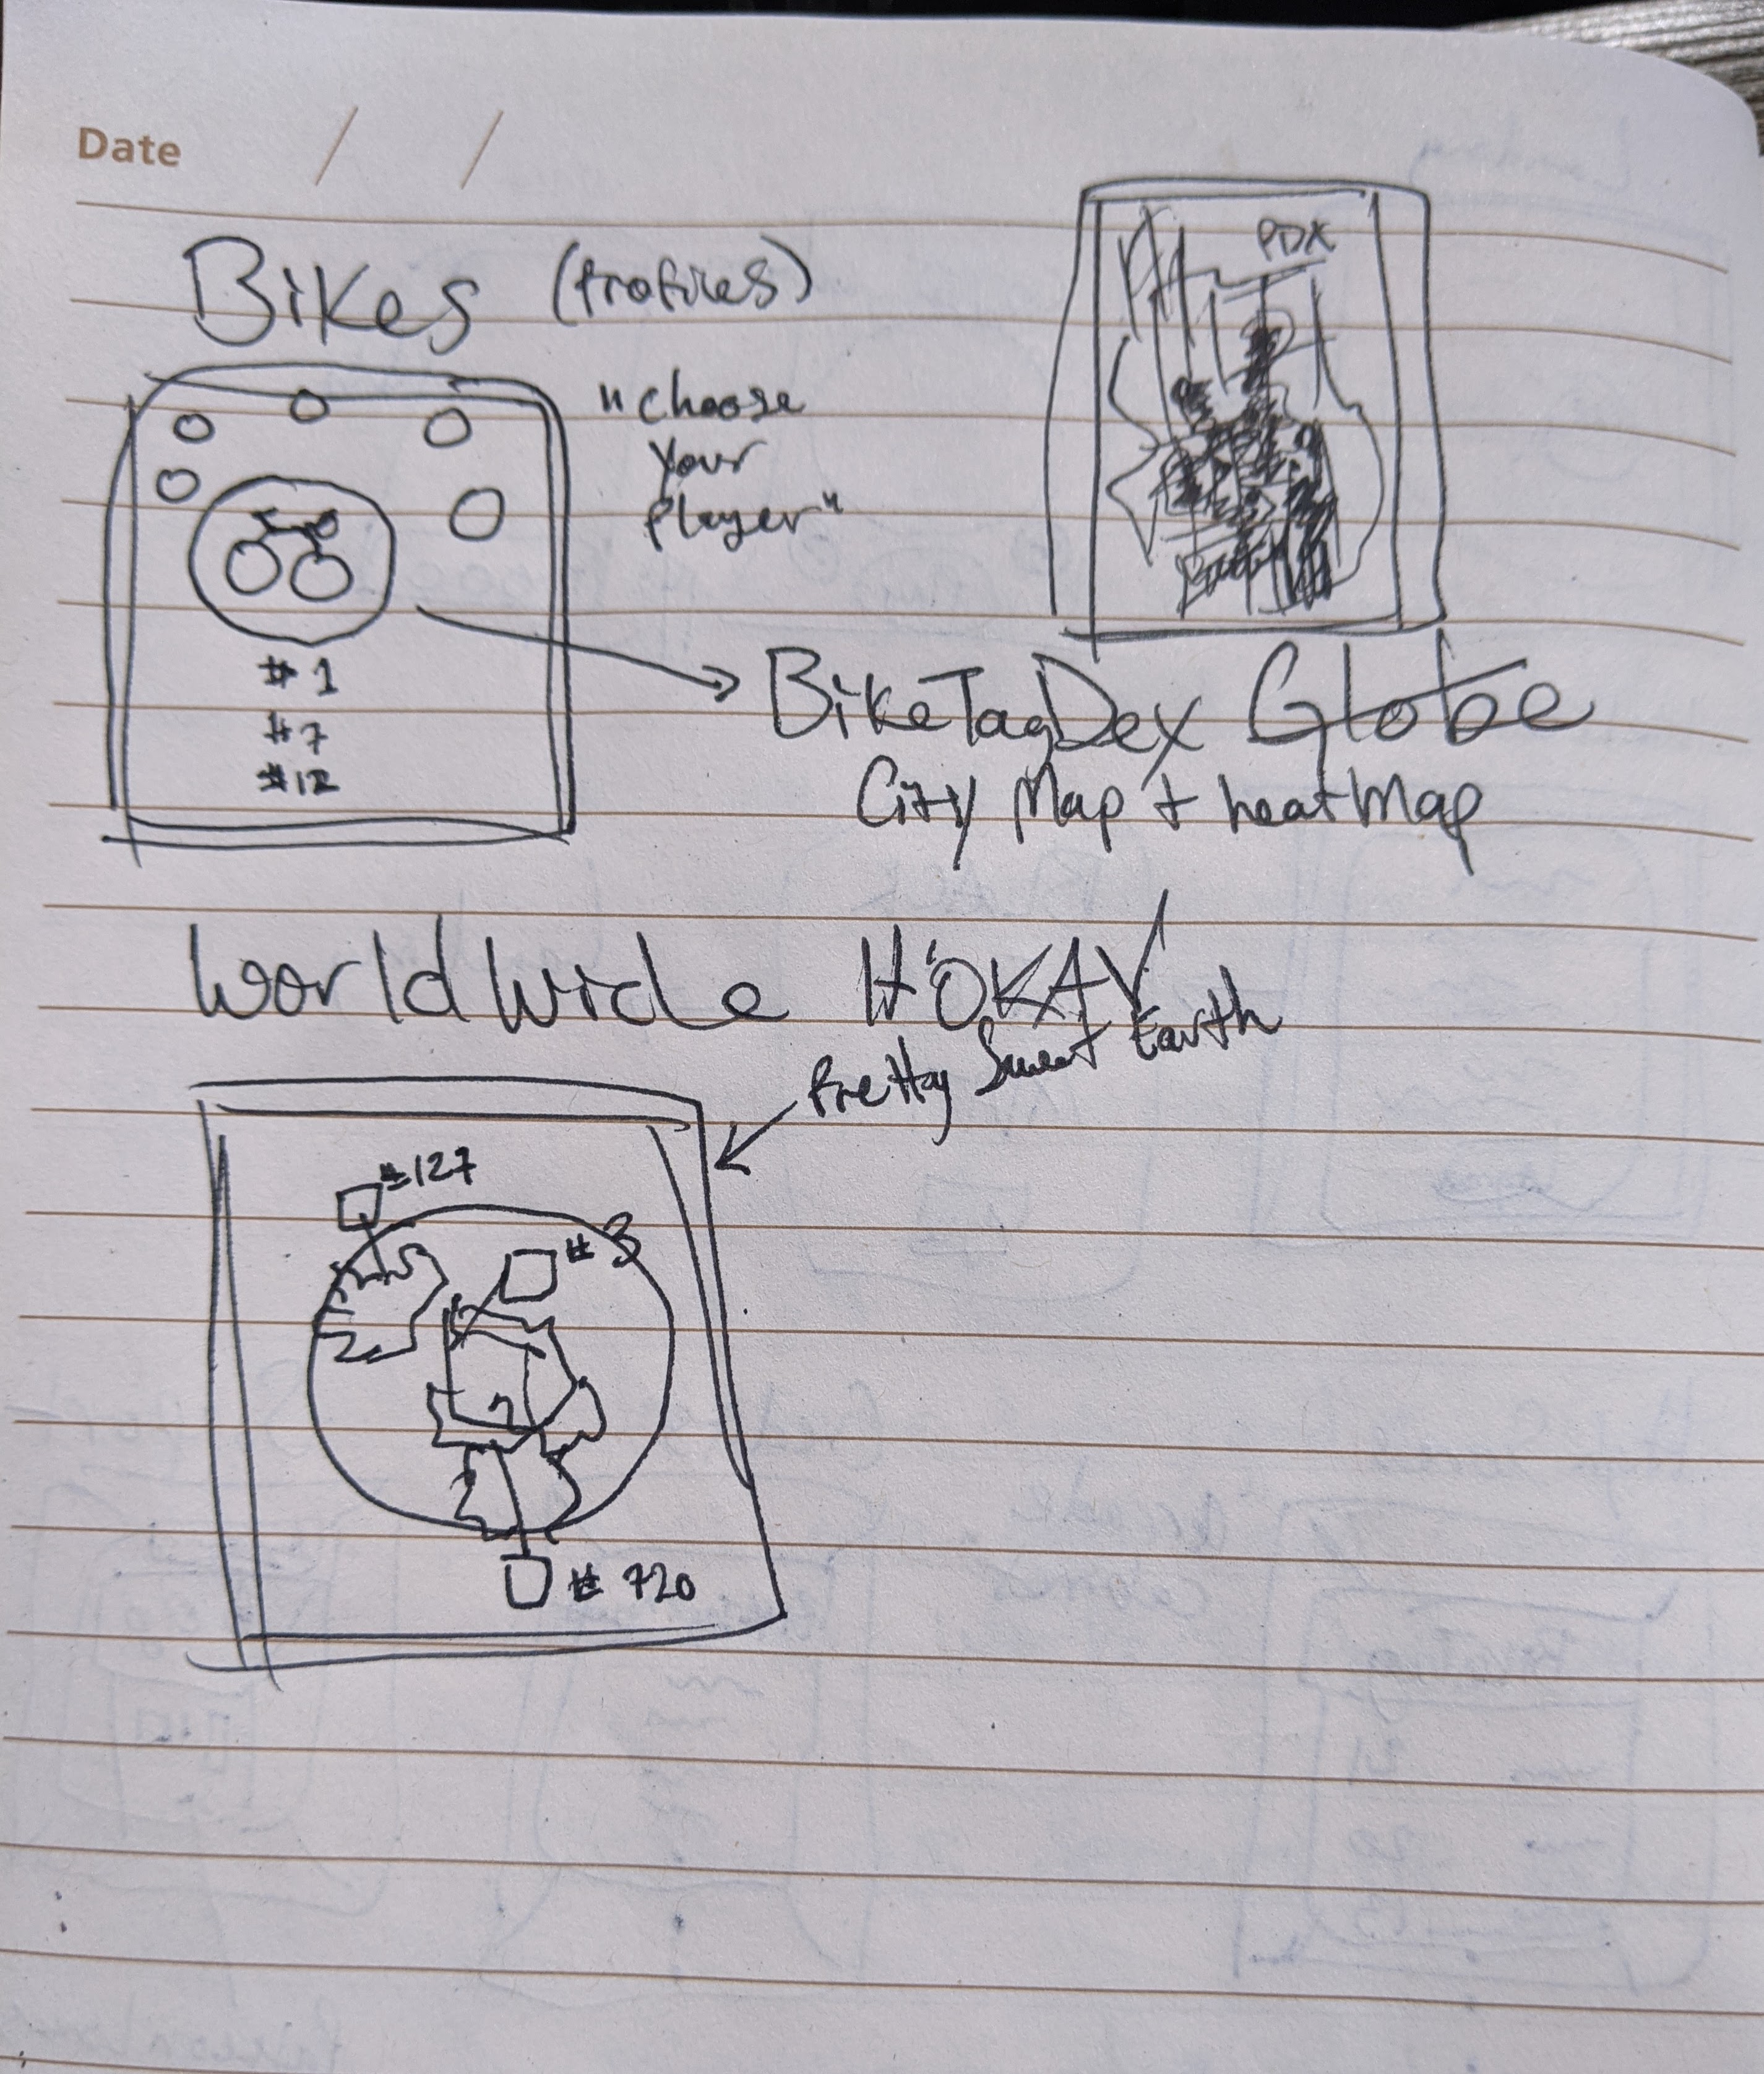 Date / /
Bikes (Profiles)
"Choose
Your
Player"
#1
#7
#12
PDX
BikeTagDex Globe
City Map + heatMap
WorldWide H'OKAY
Pretty Sweet Earth
#127
#3
#720